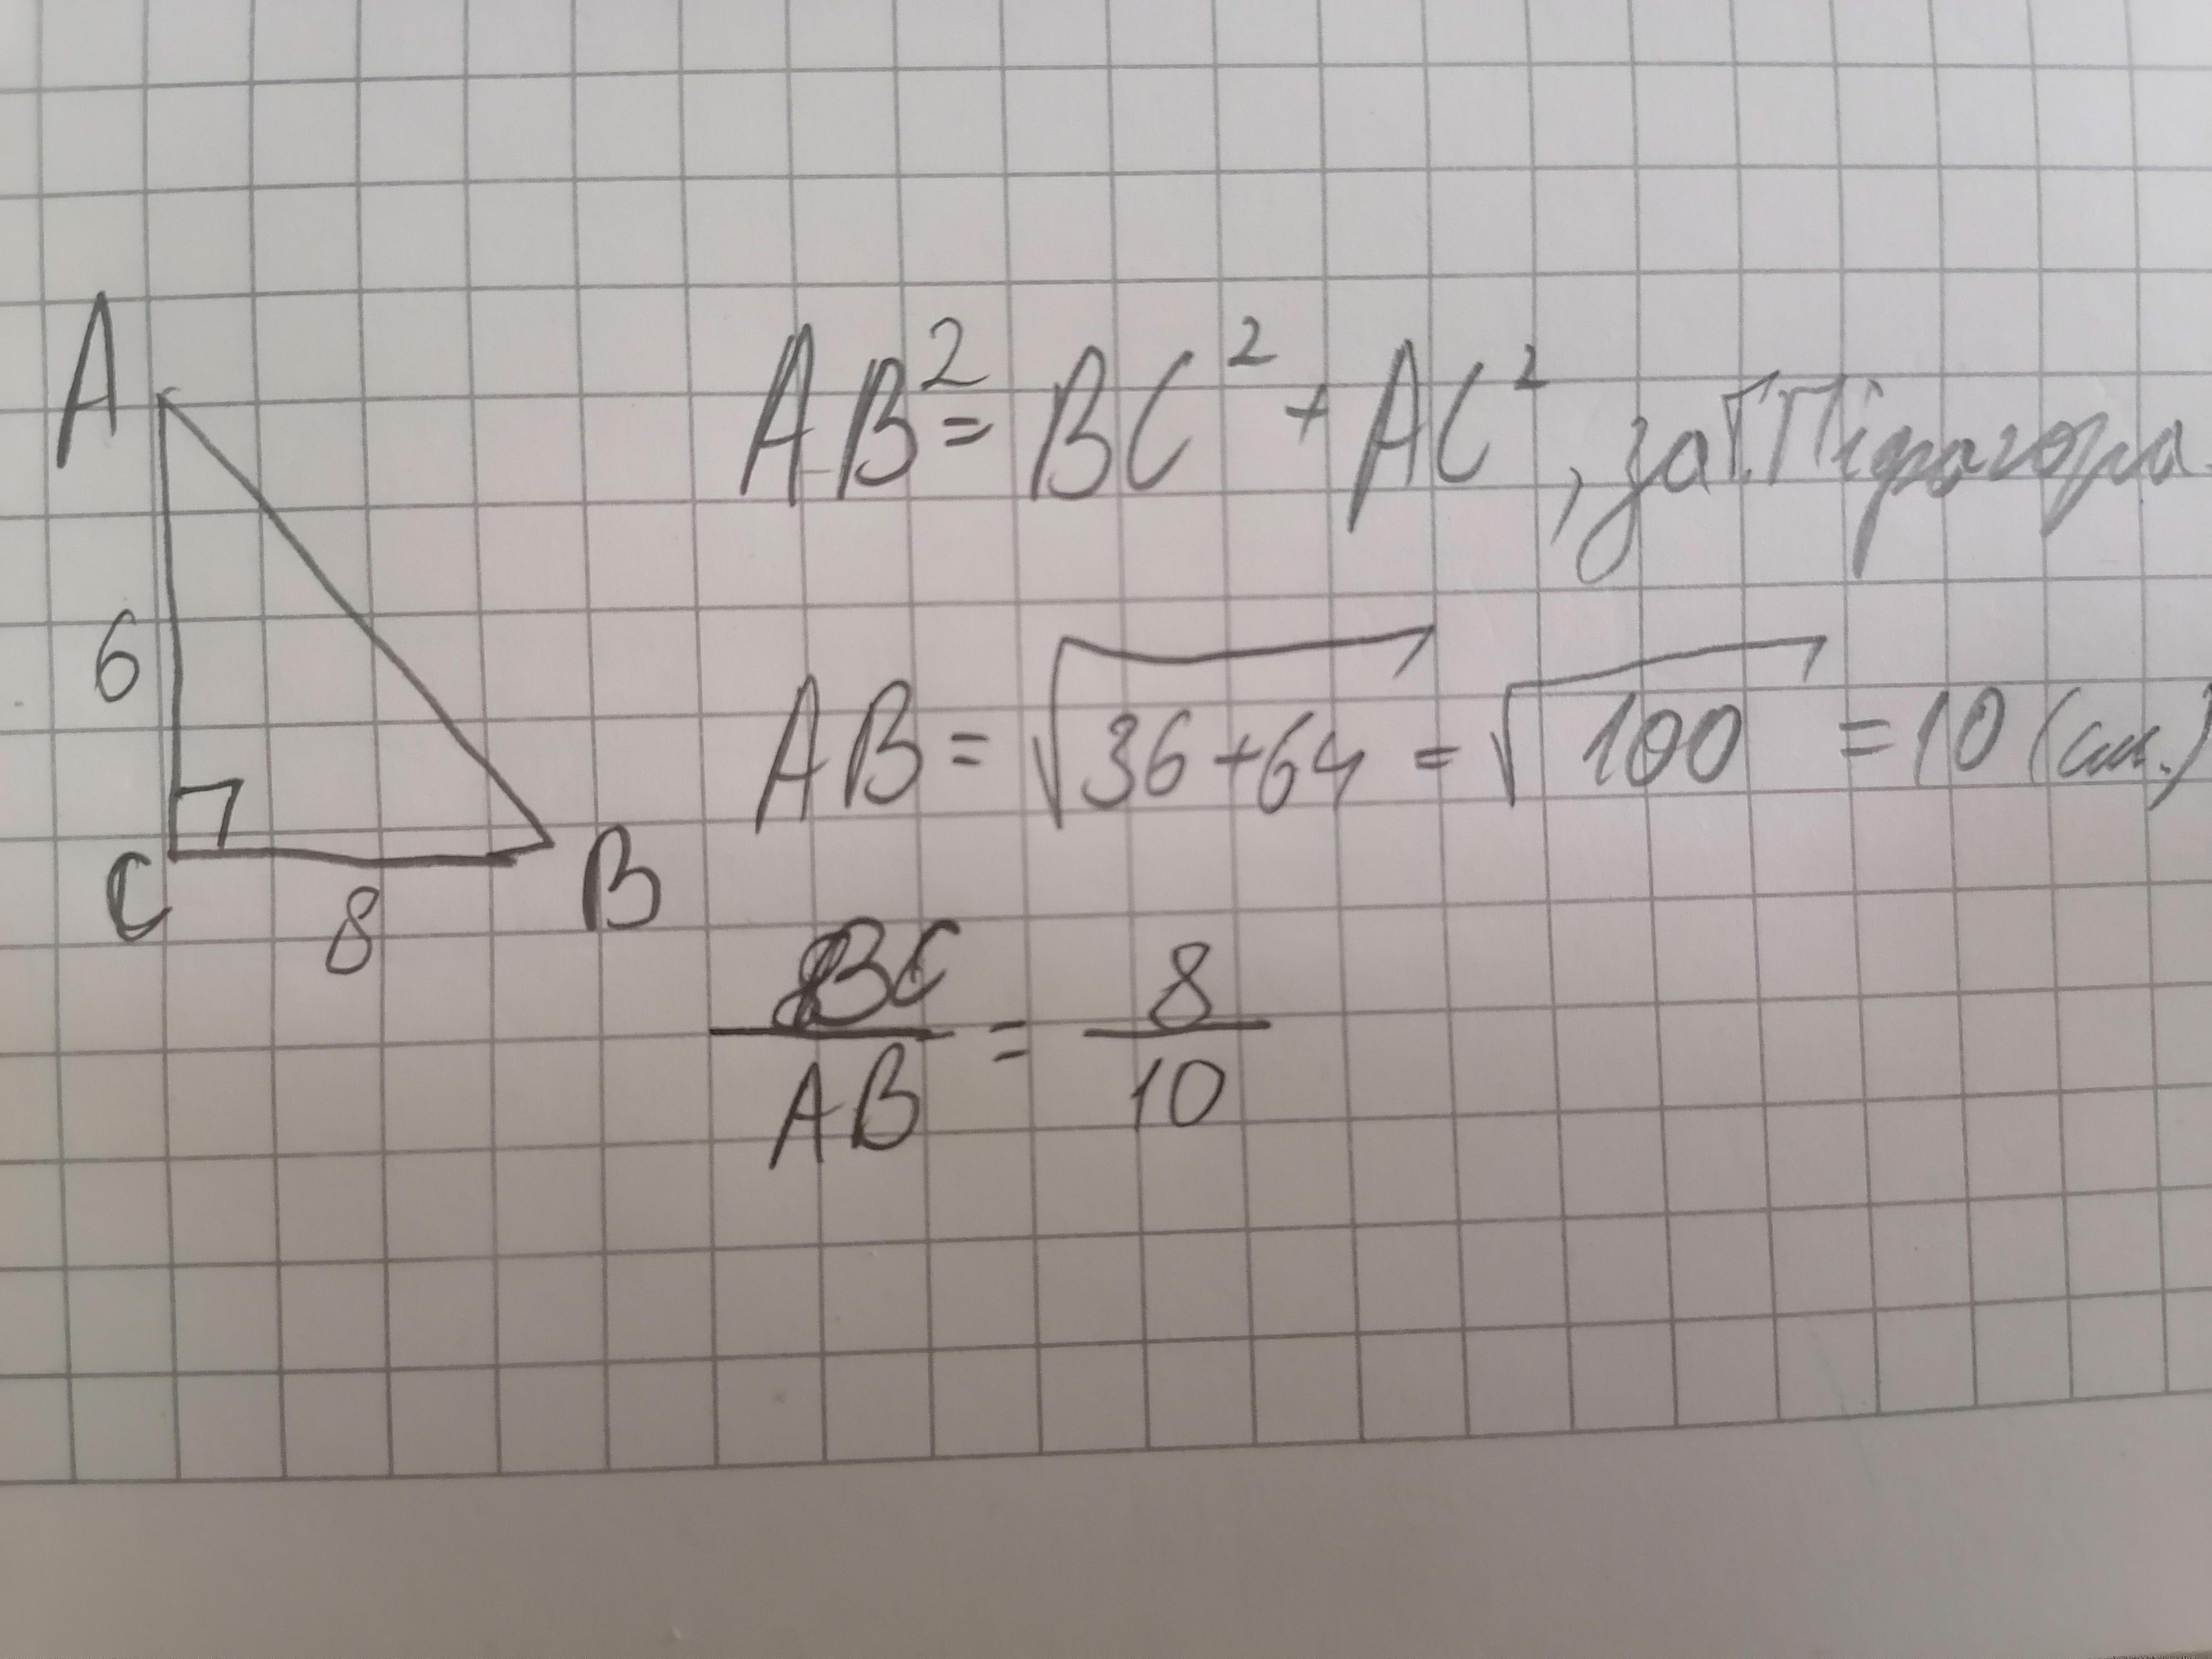 A
AB² = BC² + AC², за Т. Піфагора.
6
AB = √36+64 = √100 = 10 (см.)
C
B
8
BC/AB = 8/10